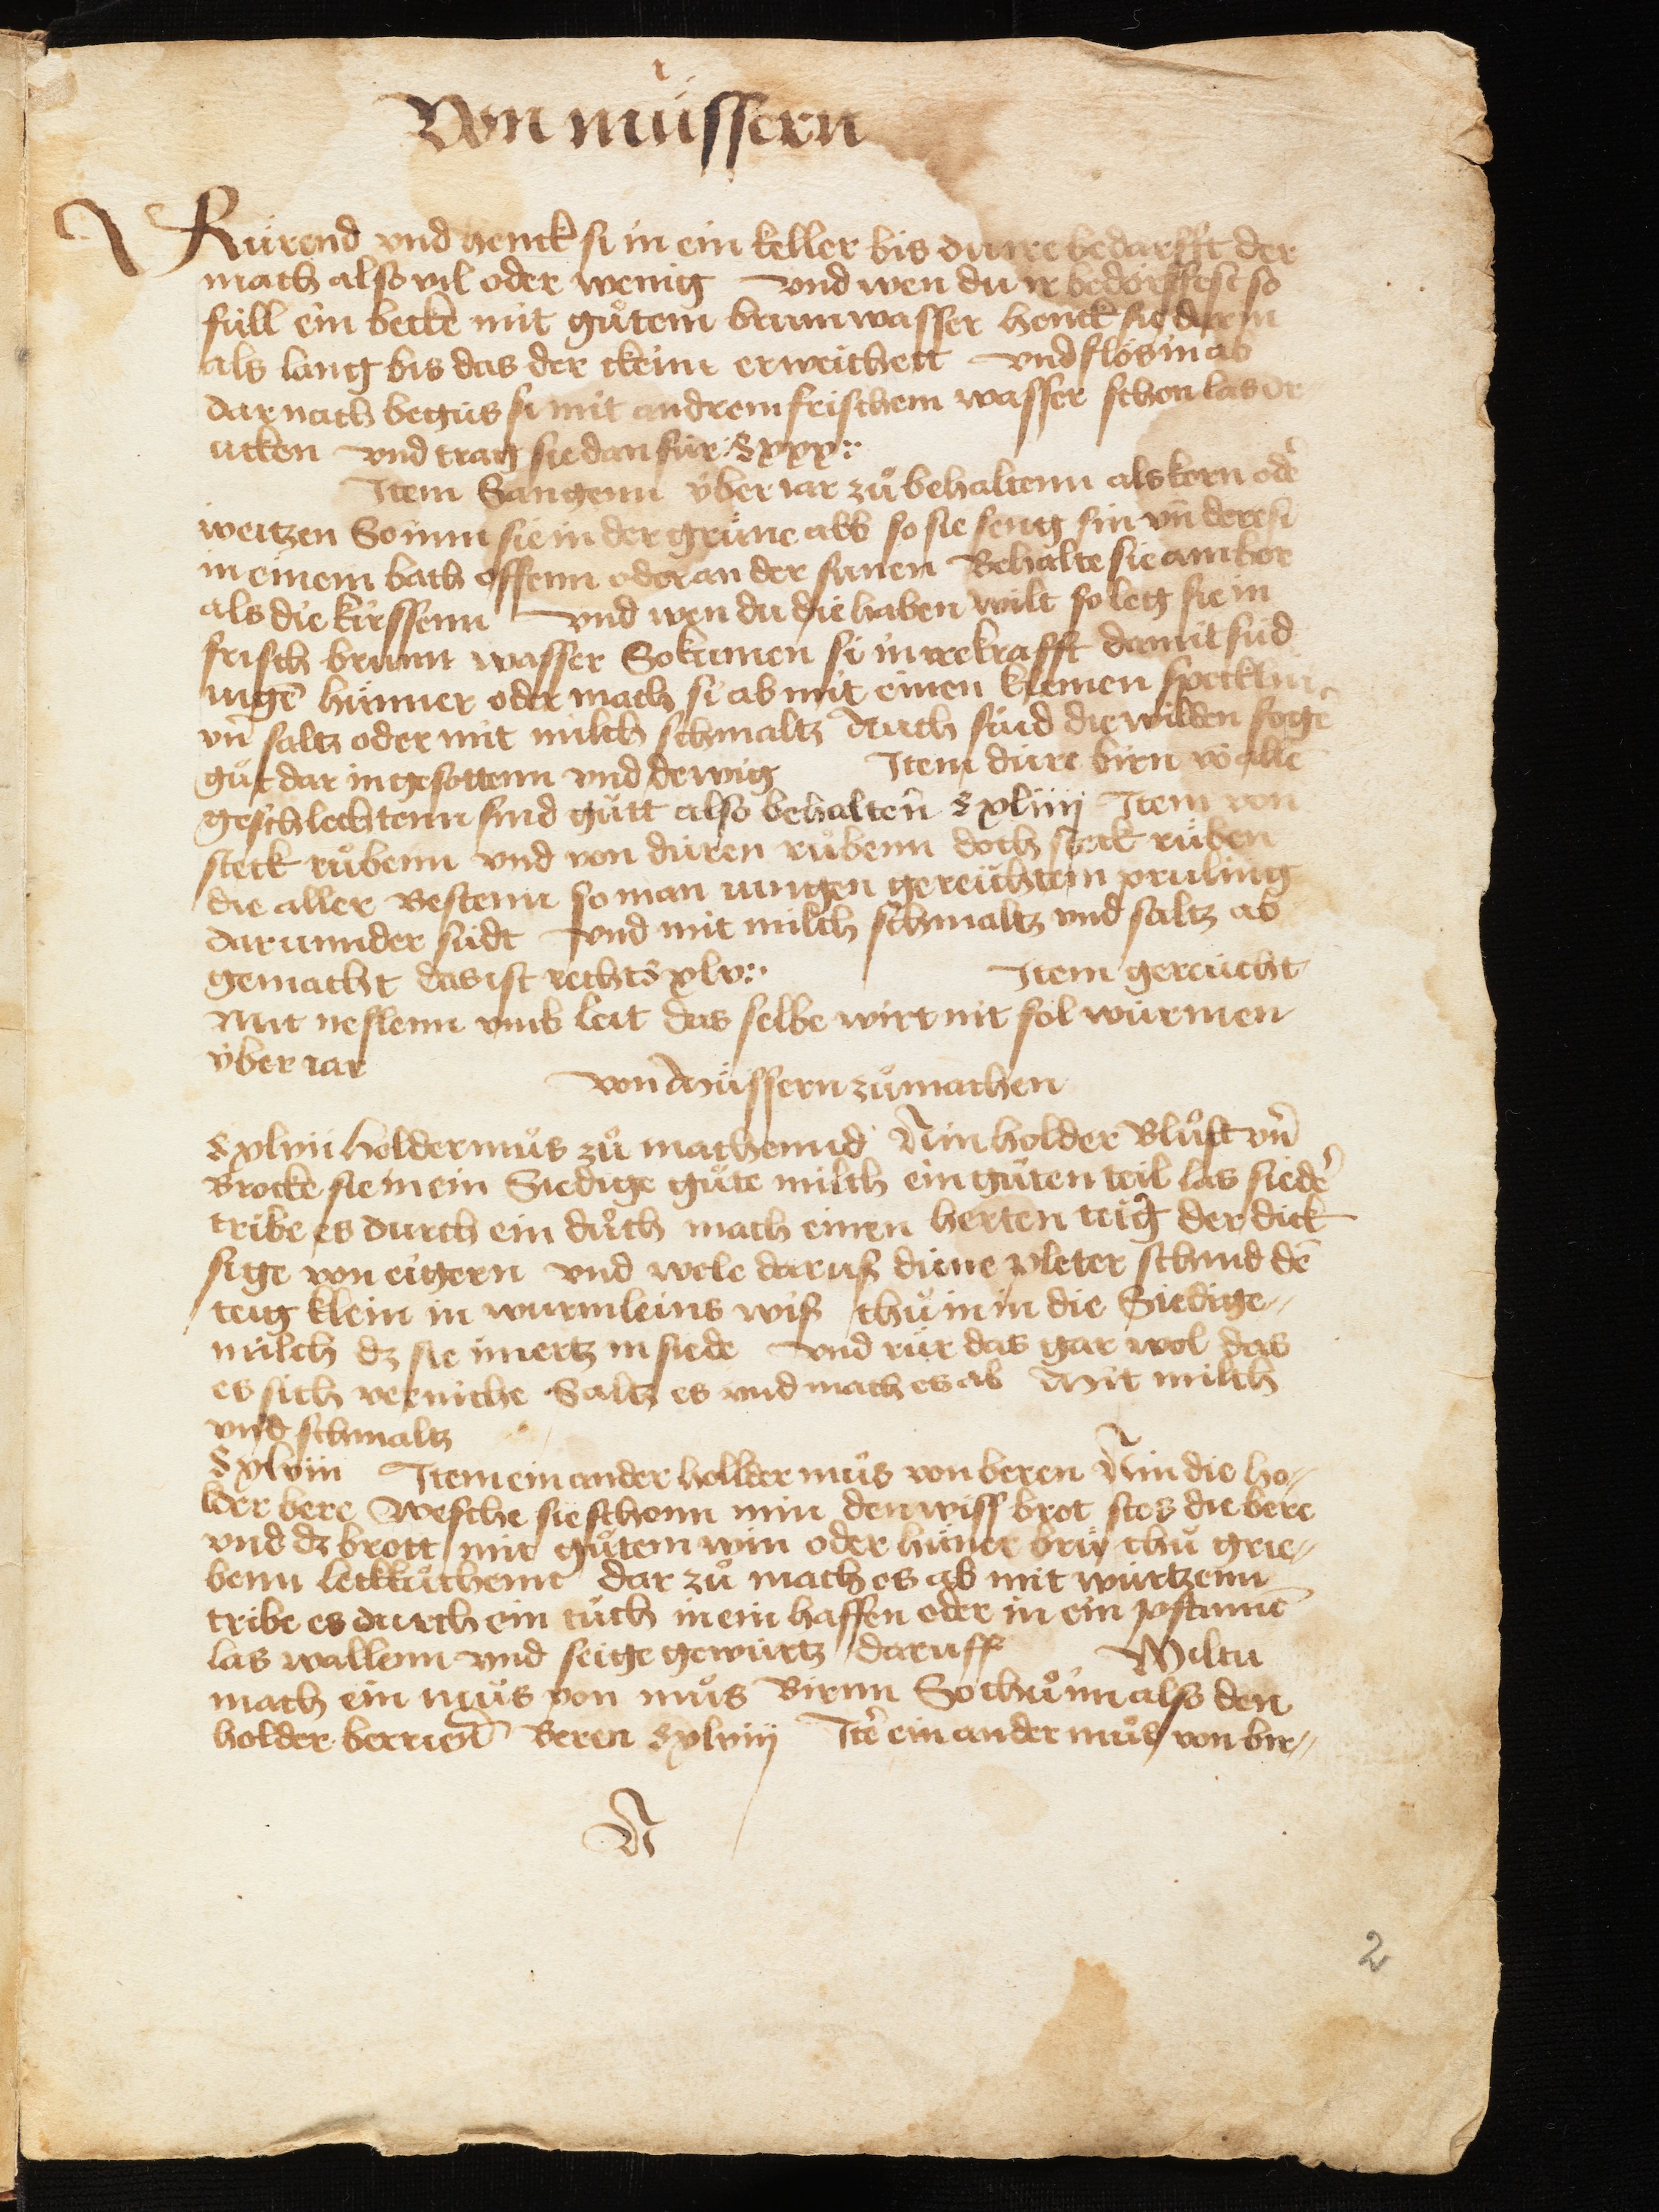 Von müssern
Rürend vnd henck si in ein keller bis du ire bedarfft der
mach also vil oder wenig vnd wen du ir bedörffest so
full ein becke mit gůtem brunwasser henck sie darin
als lang bis das der ckeim erweichett vnd flös in ab
dar nach begüs si mit andrem frischem wasser schon las dr
ucken vnd trag sie dan für xxx
Item Sangenn ÿber iar zů behaltenn als korn odeꝛ
weitzen So nim sie in der grüne abb so sie seng sin vn̄ deresi
in einem bach offenn oder an der sunen Behalte sie am bor
als die kirssenn vnd wen du die haben wilt so leg sie in
frisch brunn wasser So kumen si in ire krafft damit süd
iūgē hünner oder mach si ab mit einen kleinen specklin
vn̄ saltz oder mit milch schmaltz Auch süd die wilden fogē
gůt dar in gesottenn vnd dewig Item düre birn vō allē
geschlechtenn sind gůtt also behaltēn xliiij Item von
steck růbenn vnd von düren růbenn doch steck rüben
die aller Bestenn so man iungen gereüchtem pruling
dar unnder südt vnd mit milch schmaltz vnd saltz ab
gemacht das ist recht xlv Item gereücht
Mit neslenn vmb leit das selbe wirt nit fol würmen
ÿber iar
von Müssern zůmachen
xlvii holdermůs zů machennd Nim holder Blůst vn̄
Brocke sie in ein Siedige gůte milch ein gůten teil las siedē
tribe es durch ein důch mach einen herten teig der dick
sige von eigern vnd wele darus düne pleter schnid dē
teig klein in wurmleins wis thů in in die Siedige
milch dz sie inertz in siede vnd rür das gar wol das
es sich vermiche Saltz es vnd mach es ab Mit milch
vnd schmaltz
xlviii Item ein ander hollder můs von beren Nim die ho
lder bere Wesche sie schonn nim den wiss brot stos die bere
vnd dz brott mit gůtem win oder hüner brüy thů grie
benn leckkůchenn dar zů mach es ab mit würtzenn
tribe es durch ein tůch in ein haffen oder in ein pfannē
las wallenn vnd seige gewürtz daruff Wiltu
mach ein můs von můs Birnn So thů im also den
holder berrien Beren xlviiij Itē ein ander můs von bir
A
2